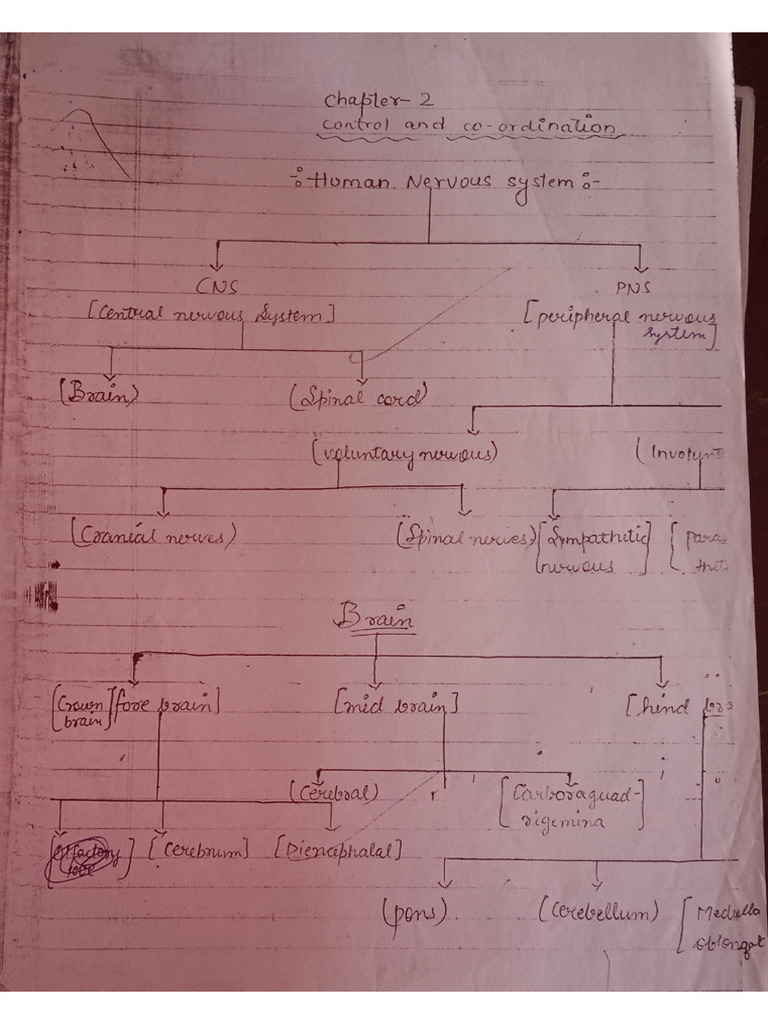 Chapter-2
Control and co-ordination
Human Nervous system
CNS
PNS
[Central nervous System]
[peripheral nervous
system]
(Brain)
(Spinal cord)
(voluntary nervous)
(Cranial nerves)
(Spinal nerves)
[Sympathitic
nurvous]
Brain
[Crown
brain]
[fore brain]
[mid brain]
[hind
(Cerebral)
[Carboraquad-
rigemina]
[Cerebrum]
[Diencephalal]
(pons)
(Cerebellum)
[Medulla
oblongat